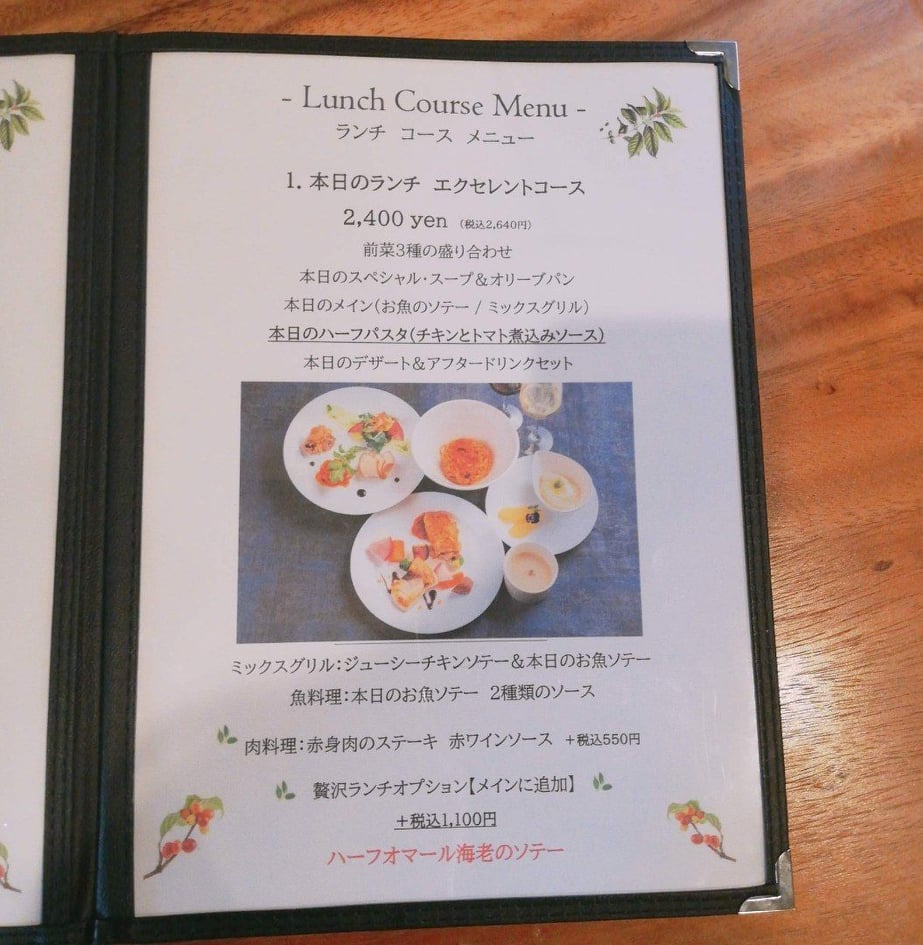 - Lunch Course Menu -
ランチ コース メニュー
1. 本日のランチ エクセレントコース
2,400 yen (税込2,640円)
前菜3種の盛り合わせ
本日のスペシャル・スープ&オリーブパン
本日のメイン(お魚のソテー / ミックスグリル)
本日のハーフパスタ(チキンとトマト煮込みソース)
本日のデザート&アフタードリンクセット
ミックスグリル:ジューシーチキンソテー&本日のお魚ソテー
魚料理:本日のお魚ソテー 2種類のソース
肉料理:赤身肉のステーキ 赤ワインソース +税込550円
贅沢ランチオプション【メインに追加】
+税込1,100円
ハーフオマール海老のソテー